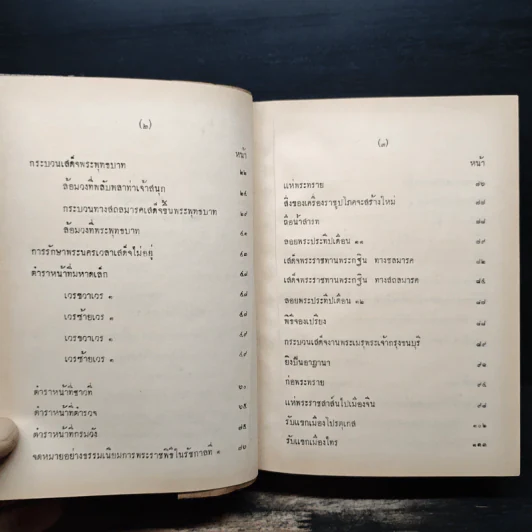 (๒)
หน้า
กระบวนเสด็จพระพุทธบาท ๒๒
ล้อมวงที่พลับพลาท่าเจ้าสนุก ๒๘
กระบวนทางสถลมารคเสด็จขึ้นพระพุทธบาท ๒๙
ล้อมวงที่พระพุทธบาท
การรักษาพระนครเวลาเสด็จไม่อยู่
ตำราหน้าที่มหาดเล็ก
เวรขวาเวร ๑
เวรซ้ายเวร ๑
เวรขวาเวร ๑
เวรซ้ายเวร ๑
ตำราหน้าที่ชาวที่
ตำราหน้าที่ตำรวจ
ตำราหน้าที่กรมวัง
จดหมายอย่างธรรมเนียมการพระราชพิธีในรัชกาลที่ ๑
(๓)
หน้า
แห่พระทราย
สิ่งของเครื่องราชูปโภคจะสร้างใหม่
ถือน้ำสารท
ลอยพระประทีปเดือน ๑๑
เสด็จพระราชทานพระกฐิน ทางชลมารค ๘๒
เสด็จพระราชทานพระกฐิน ทางสถลมารค
ลอยพระประทีปเดือน ๑๒
พิธีจองเปรียง
กระบวนเสด็จงานพระเมรุพระเจ้ากรุงธนบุรี ๘๙
ยิงปืนอาฏานา ๙๑
ก่อพระทราย
แห่พระราชสาส์นไปเมืองจีน
รับแขกเมืองโปรตุเกส ๑๐๒
รับแขกเมืองไทร ๑๑๑